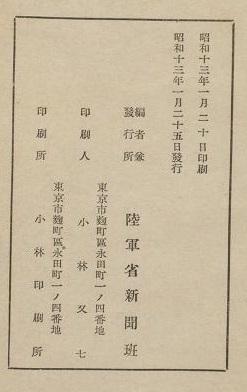 昭和十三年一月二十日印刷
昭和十三年一月二十五日發行
編者兼
發行所
陸軍省新聞班
東京市麴町區永田町一ノ四番地
印刷人
小林又七
東京市麴町區永田町一ノ四番地
印刷所
小林印刷所